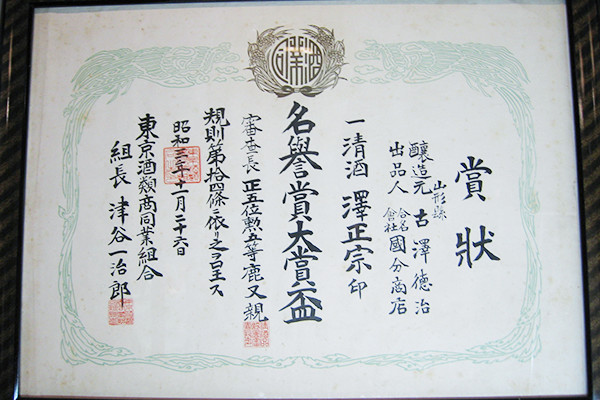 賞狀
山形縣
醸造元 古澤德治
出品人 合名會社 國分商店
一清酒 澤正宗印
名譽賞大賞盃
審査長 正五位勲五等 鹿又親
規則第拾四條ニ依リ之ヲ呈ス
昭和三年十一月二十六日
東京酒類商同業組合
組長 津谷一治郎